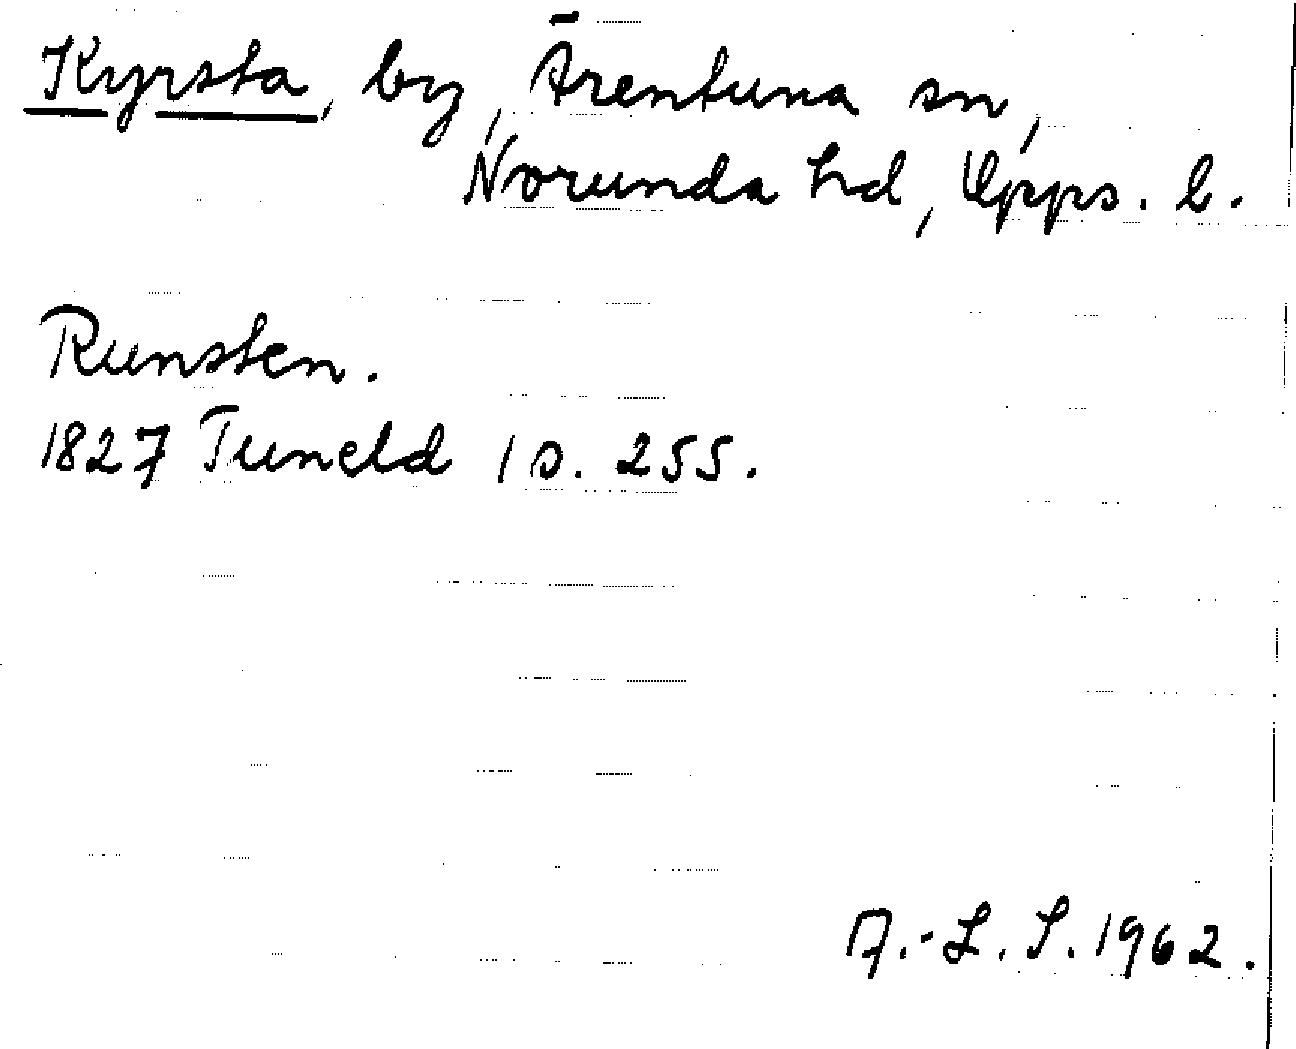 Kyrsta, by, Ärentuna sn,
Norunda hd, Upps. l.
Runsten.
1827 Tuneld 1 s. 255.
A.-L. S. 1962.